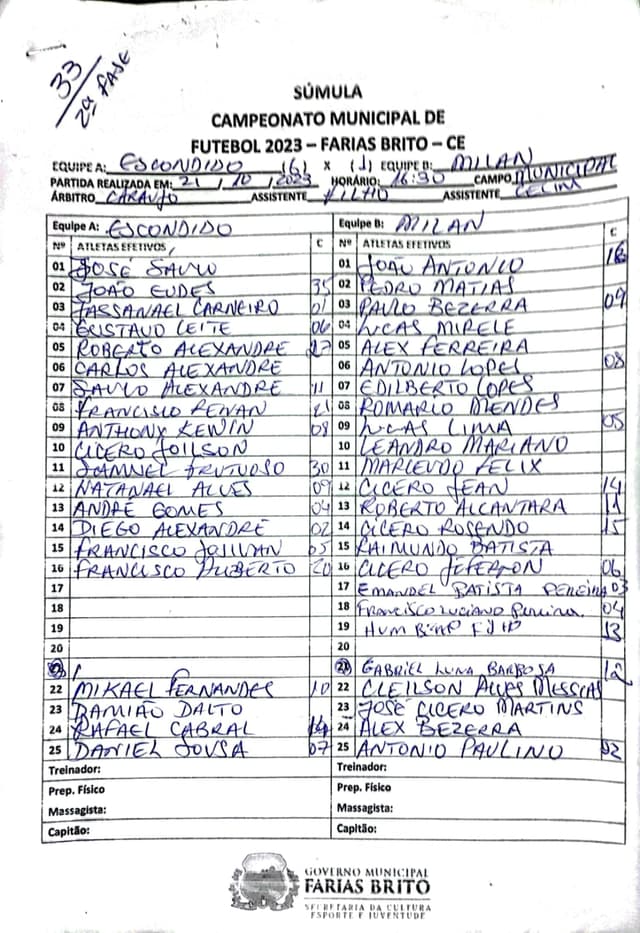 33/
2ª FASE
SÚMULA
CAMPEONATO MUNICIPAL DE
FUTEBOL 2023 – FARIAS BRITO – CE
EQUIPE A: ESCONDIDO (6) X (1) EQUIPE B: MILAN
PARTIDA REALIZADA EM: 21 / 10 / 2023 HORÁRIO: 16:30 CAMPO MUNICIPAL
ÁRBITRO CARAUJO ASSISTENTE ASSISTENTE
Equipe A: ESCONDIDO Equipe B: MILAN
Nº ATLETAS EFETIVOS C Nº ATLETAS EFETIVOS C
01 JOSÉ SAVIO 01 JOÃO ANTONIO 16
02 JOÃO EUDES 35 02 PEDRO MATIAS
03 TASSANAEL CARNEIRO 01 03 PAULO BEZERRA 09
04 LEITE 06 04 LUCAS MIRELE
05 ROBERTO ALEXANDRE 27 05 ALEX FERREIRA
06 CARLOS ALEXANDRE 06 ANTONIO LOPES 08
07 SAVIO ALEXANDRE 11 07 EDILBERTO LOPES
08 FRANCISCO RENAN 21 08 ROMARIO MENDES
09 ANTHONY KEWIN 08 09 LUCAS LIMA 05
10 CICERO JOILSON 10 LEANDRO MARIANO
11 SAMUEL FRUTUOSO 30 11 FELIX
12 NATANAEL ALVES 09 12 CICERO JEAN 14
13 ANDRÉ GOMES 04 13 ROBERTO ALCANTARA 11
14 DIEGO ALEXANDRE 02 14 CICERO ROSENDO 15
15 FRANCISCO 05 15 RAIMUNDO BATISTA
16 FRANCISCO 20 16 CICERO JEFERSON 06
17 17 EMANOEL BATISTA PEREIRA 03
18 18 FRANCISCO LUCIANO Pereira 04
19 19 13
20 20
21 21 GABRIEL LUNA BARBOSA 12
22 MIKAEL FERNANDES 10 22 CLEILSON ALVES MESSIAS
23 DAMIÃO DALTO 23 JOSÉ CICERO MARTINS
24 RAFAEL CABRAL 24 ALEX BEZERRA
25 DANIEL SOUSA 07 25 ANTONIO PAULINO 02
Treinador: Treinador:
Prep. Físico Prep. Físico
Massagista: Massagista:
Capitão: Capitão:
GOVERNO MUNICIPAL
FARIAS BRITO
SECRETARIA DA CULTURA
ESPORTE E JUVENTUDE